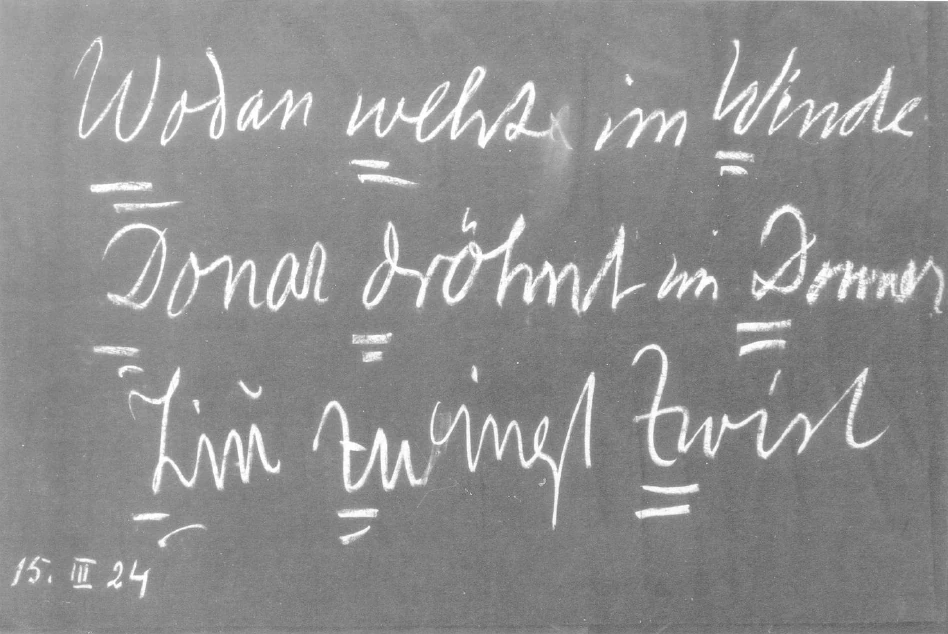 Wodan weht im Winde
Donar dröhnt im Donner
Ziu zwingt Zwist
15. III 24